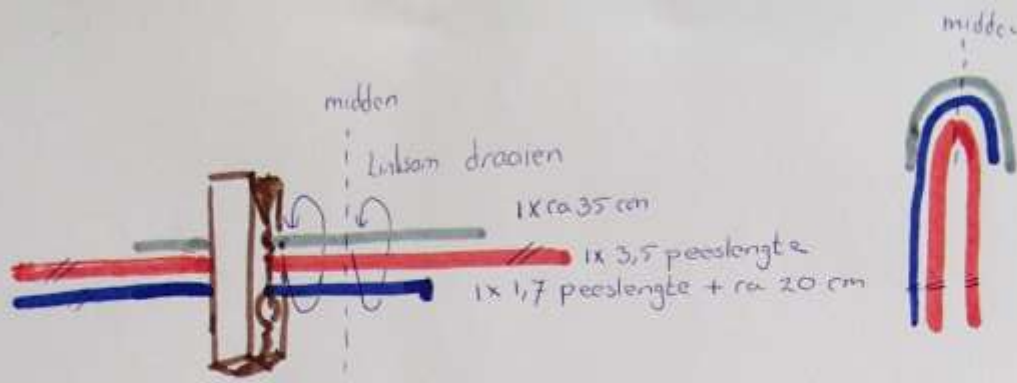 midden
Linksom draaien
1 x ca 35 cm
1x 3,5 peeslengte
1x 1,7 peeslengte + ca 20 cm
midden